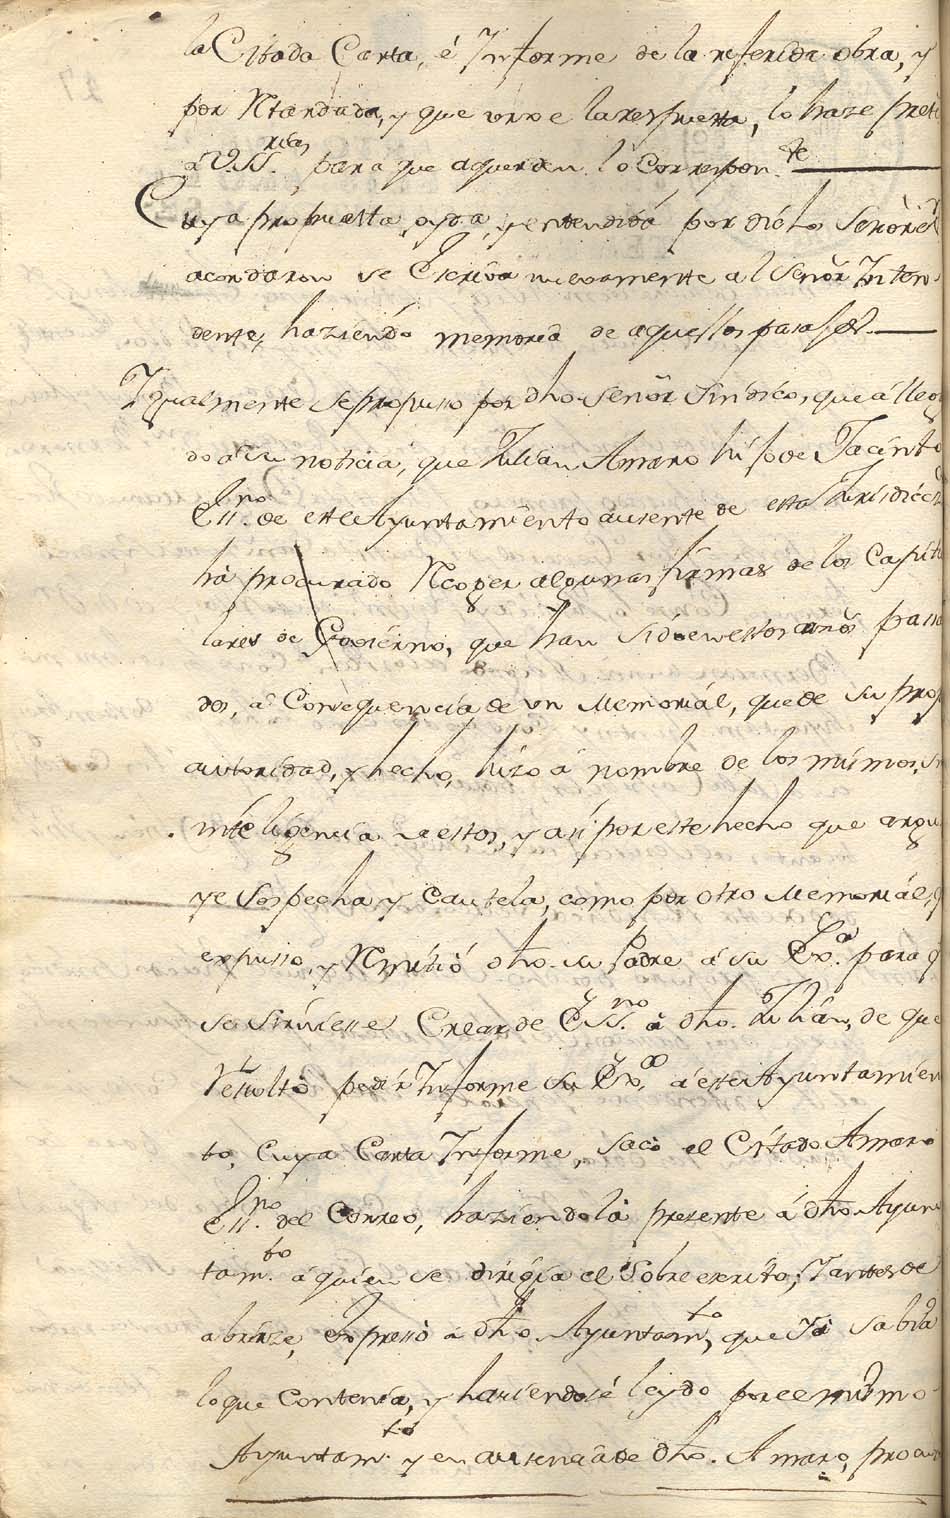 la Citada Carta, é Informe de la referida obra, y
por Retardada, y que urxe la respuesta, lo haze preste
a V.SS.rias para que aquerden lo Correspon.te
Cuya propuesta, oyda, y entendida por dichos Señores
acordaron se Escriva nuevamente al Señor Inten-
dente, haziendo memoria de aquellos pasajes.
Igualmente se propusso por dho Señor Sindico, que á llega
do a su noticia, que Julian Amaro hijo de Jacinto
Ess.no de este Ayuntamiento ausente de esta Jurisdicc
há procurado Recoger algunas firmas de los Capitu
lares de Govierno, que han sido en estos años passa
dos, a Consequencia de un Memorial, que de su prop
autoridad, y hecho, hizo á nombre de los mismos, sin
inteligencia de estos, y asi por este hecho que argu
ye Sospecha y Cautela, como por otro Memorial, q
expusso, y Remitió dho. su Padre á su Ex.a para q
se sirviesse Crear de Ess.no á dho. Julián, de que
Resultó pedir Informe su Ex.a á este Ayuntamien
to, Cuya Carta Informe, sacó el Citado Amaro
Ess.no del Correo, haziendola presente á dho Ayun
tam.to á quien se dirigia el Sobreexcrito; Y antes de
abrirze, Expressó á dho Ayuntam.to, que Yá Sabia
lo que Contenia, y haviendose leydo por el mismo
Ayuntam.to y en ausencia de dho. Amaro, procu